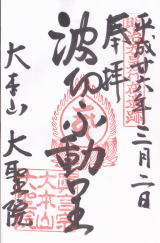 平成廿六年三月二日
奉拝
波切不動尊
大本山 大聖院